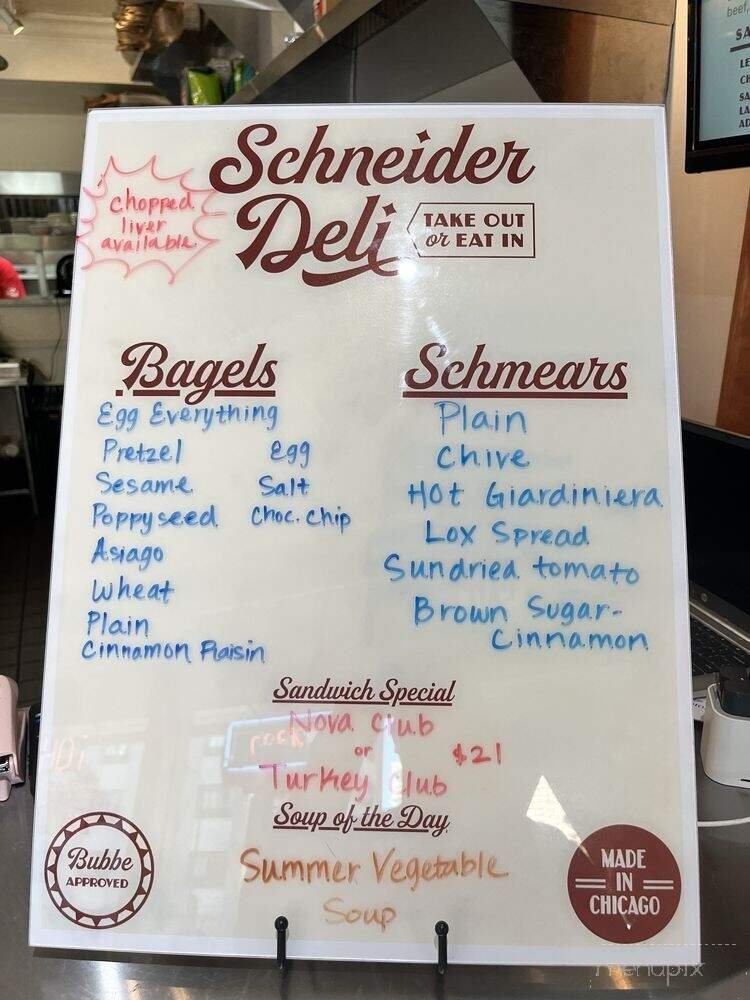 chopped
liver
available
Schneider
Deli
TAKE OUT
or EAT IN
Bagels
Egg Everything
Pretzel Egg
Sesame Salt
Poppyseed Choc. Chip
Asiago
Wheat
Plain
Cinnamon Raisin
Schmears
Plain
Chive
Hot Giardiniera
Lox Spread
Sundried tomato
Brown Sugar-
Cinnamon
Sandwich Special
Nova Club
or $21
Turkey Club
Soup of the Day
Summer Vegetable
Soup
Bubbe
APPROVED
MADE
IN
CHICAGO
menupix
beef,
SA
LE
CH
SA
LA
AD